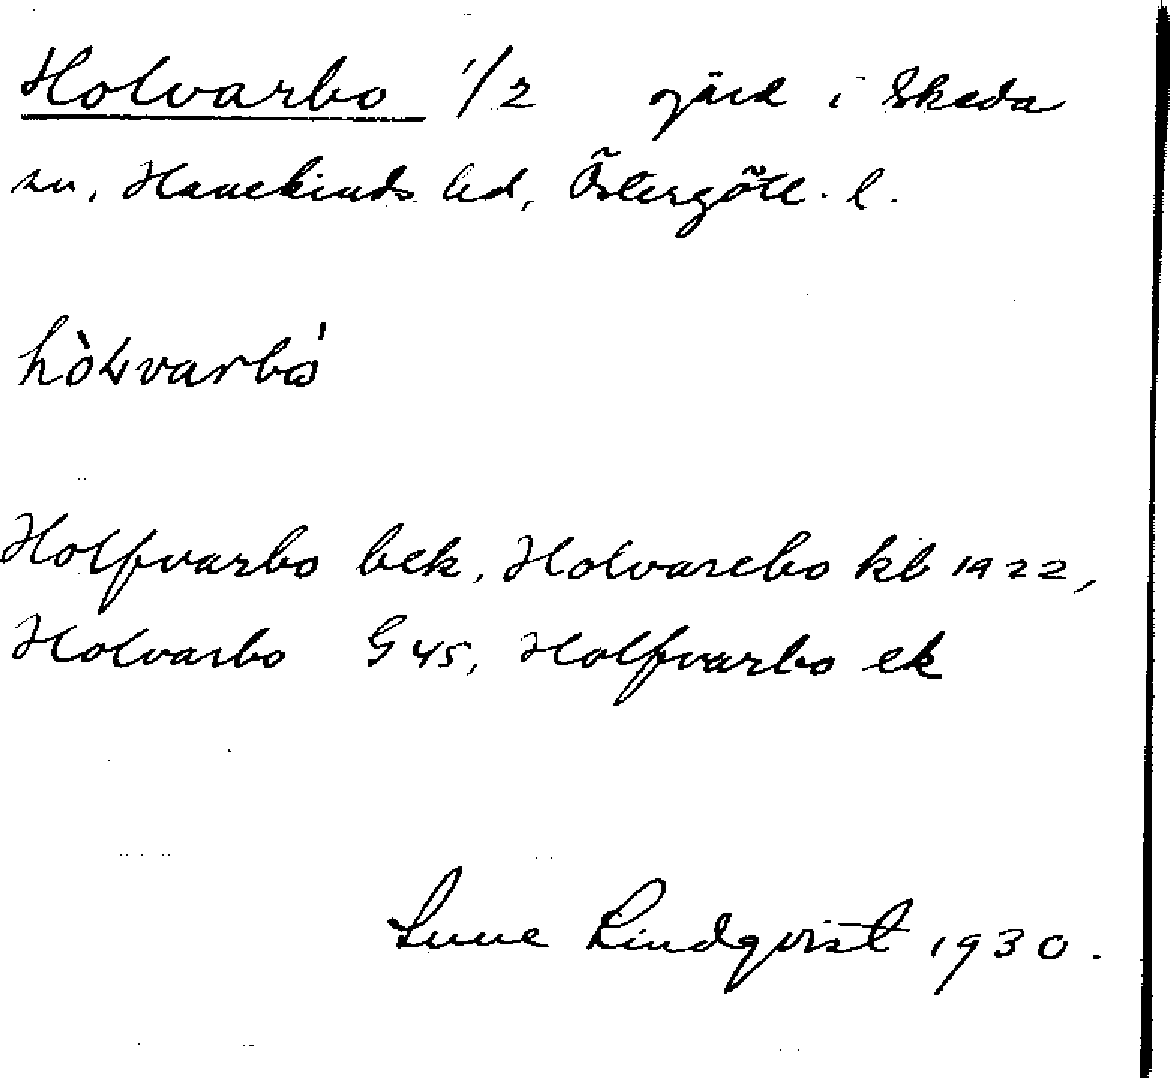 Holvarbo 1/2 gård i Skeda
sn, Hanekinds hd, Östergötl. l.
hòɫvarbó
Holfvarbo bek, Holvarebo kb 1922,
Holvarbo G 45, Holfvarbo ek
Sune Lindqvist 1930.